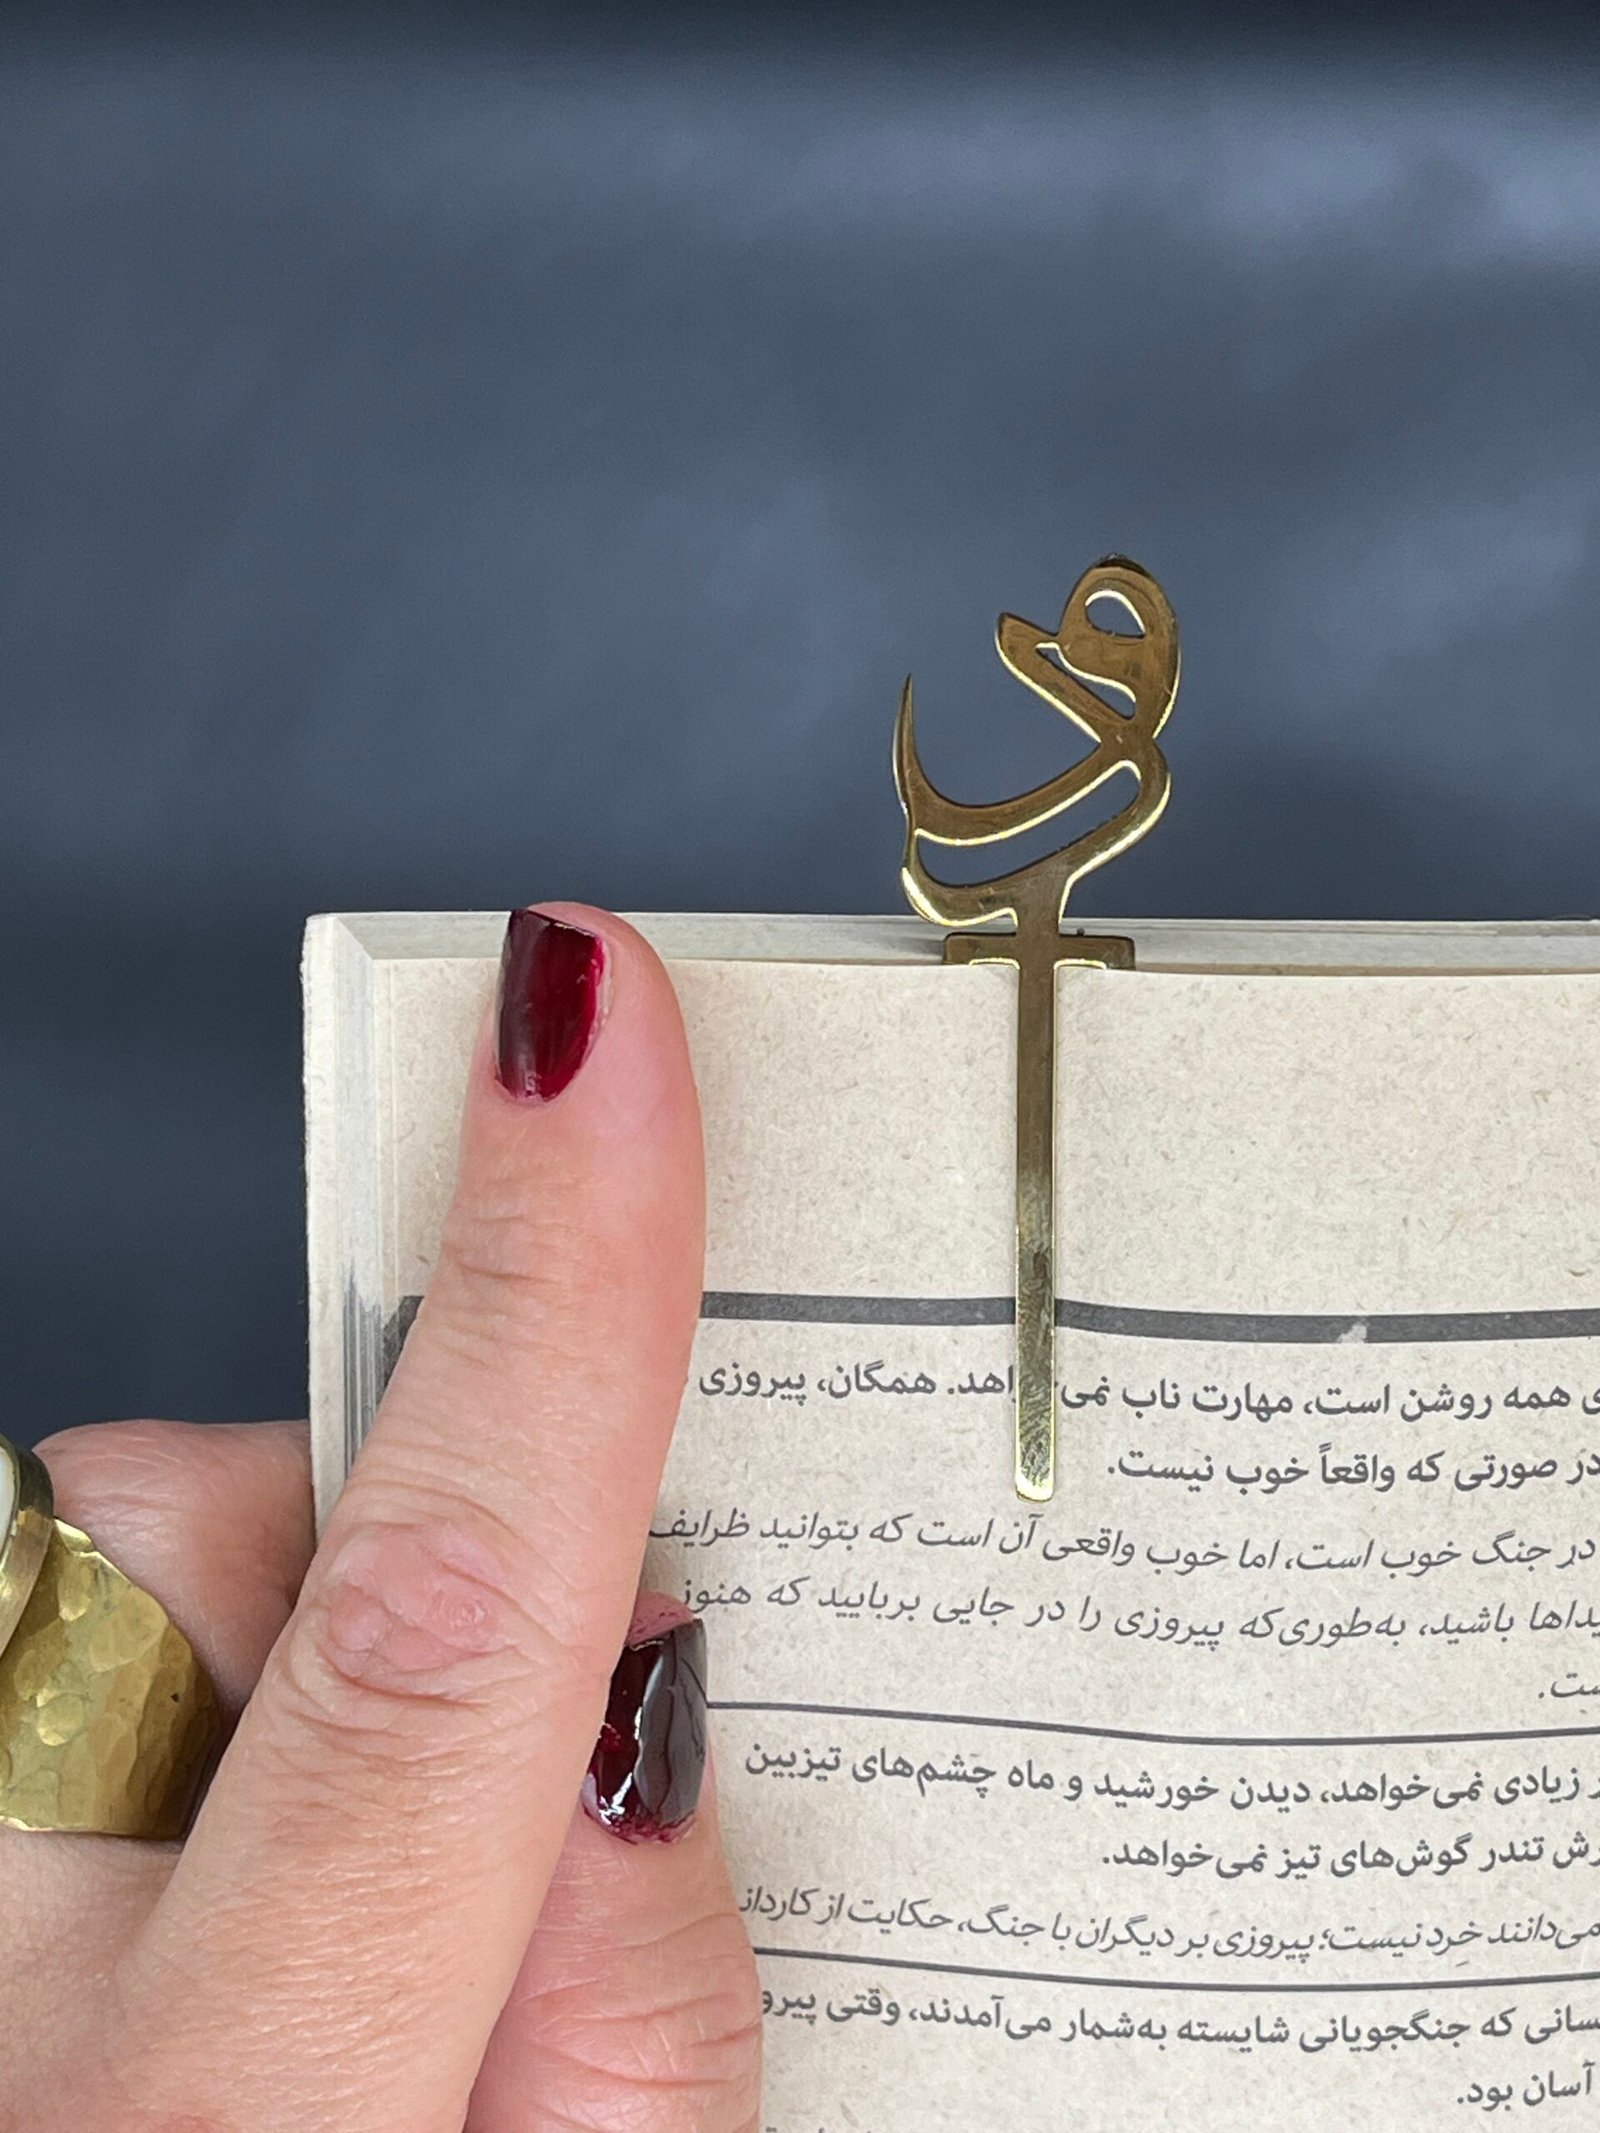 همه روشن است، مهارت ناب نمی‌خواهد. همگان، پیروزی
در صورتی که واقعاً خوب نیست.
در جنگ خوب است، اما خوب واقعی آن است که بتوانید ظرایف
باشید، به‌طوری‌که پیروزی را در جایی بربایید که هنوز
زیادی نمی‌خواهد، دیدن خورشید و ماه چشم‌های تیزبین
تندر گوش‌های تیز نمی‌خواهد.
می‌دانند خِرد نیست؛ پیروزی بر دیگران با جنگ، حکایت از
که جنگجویانی شایسته به‌شمار می‌آمدند، وقتی
آسان بود.